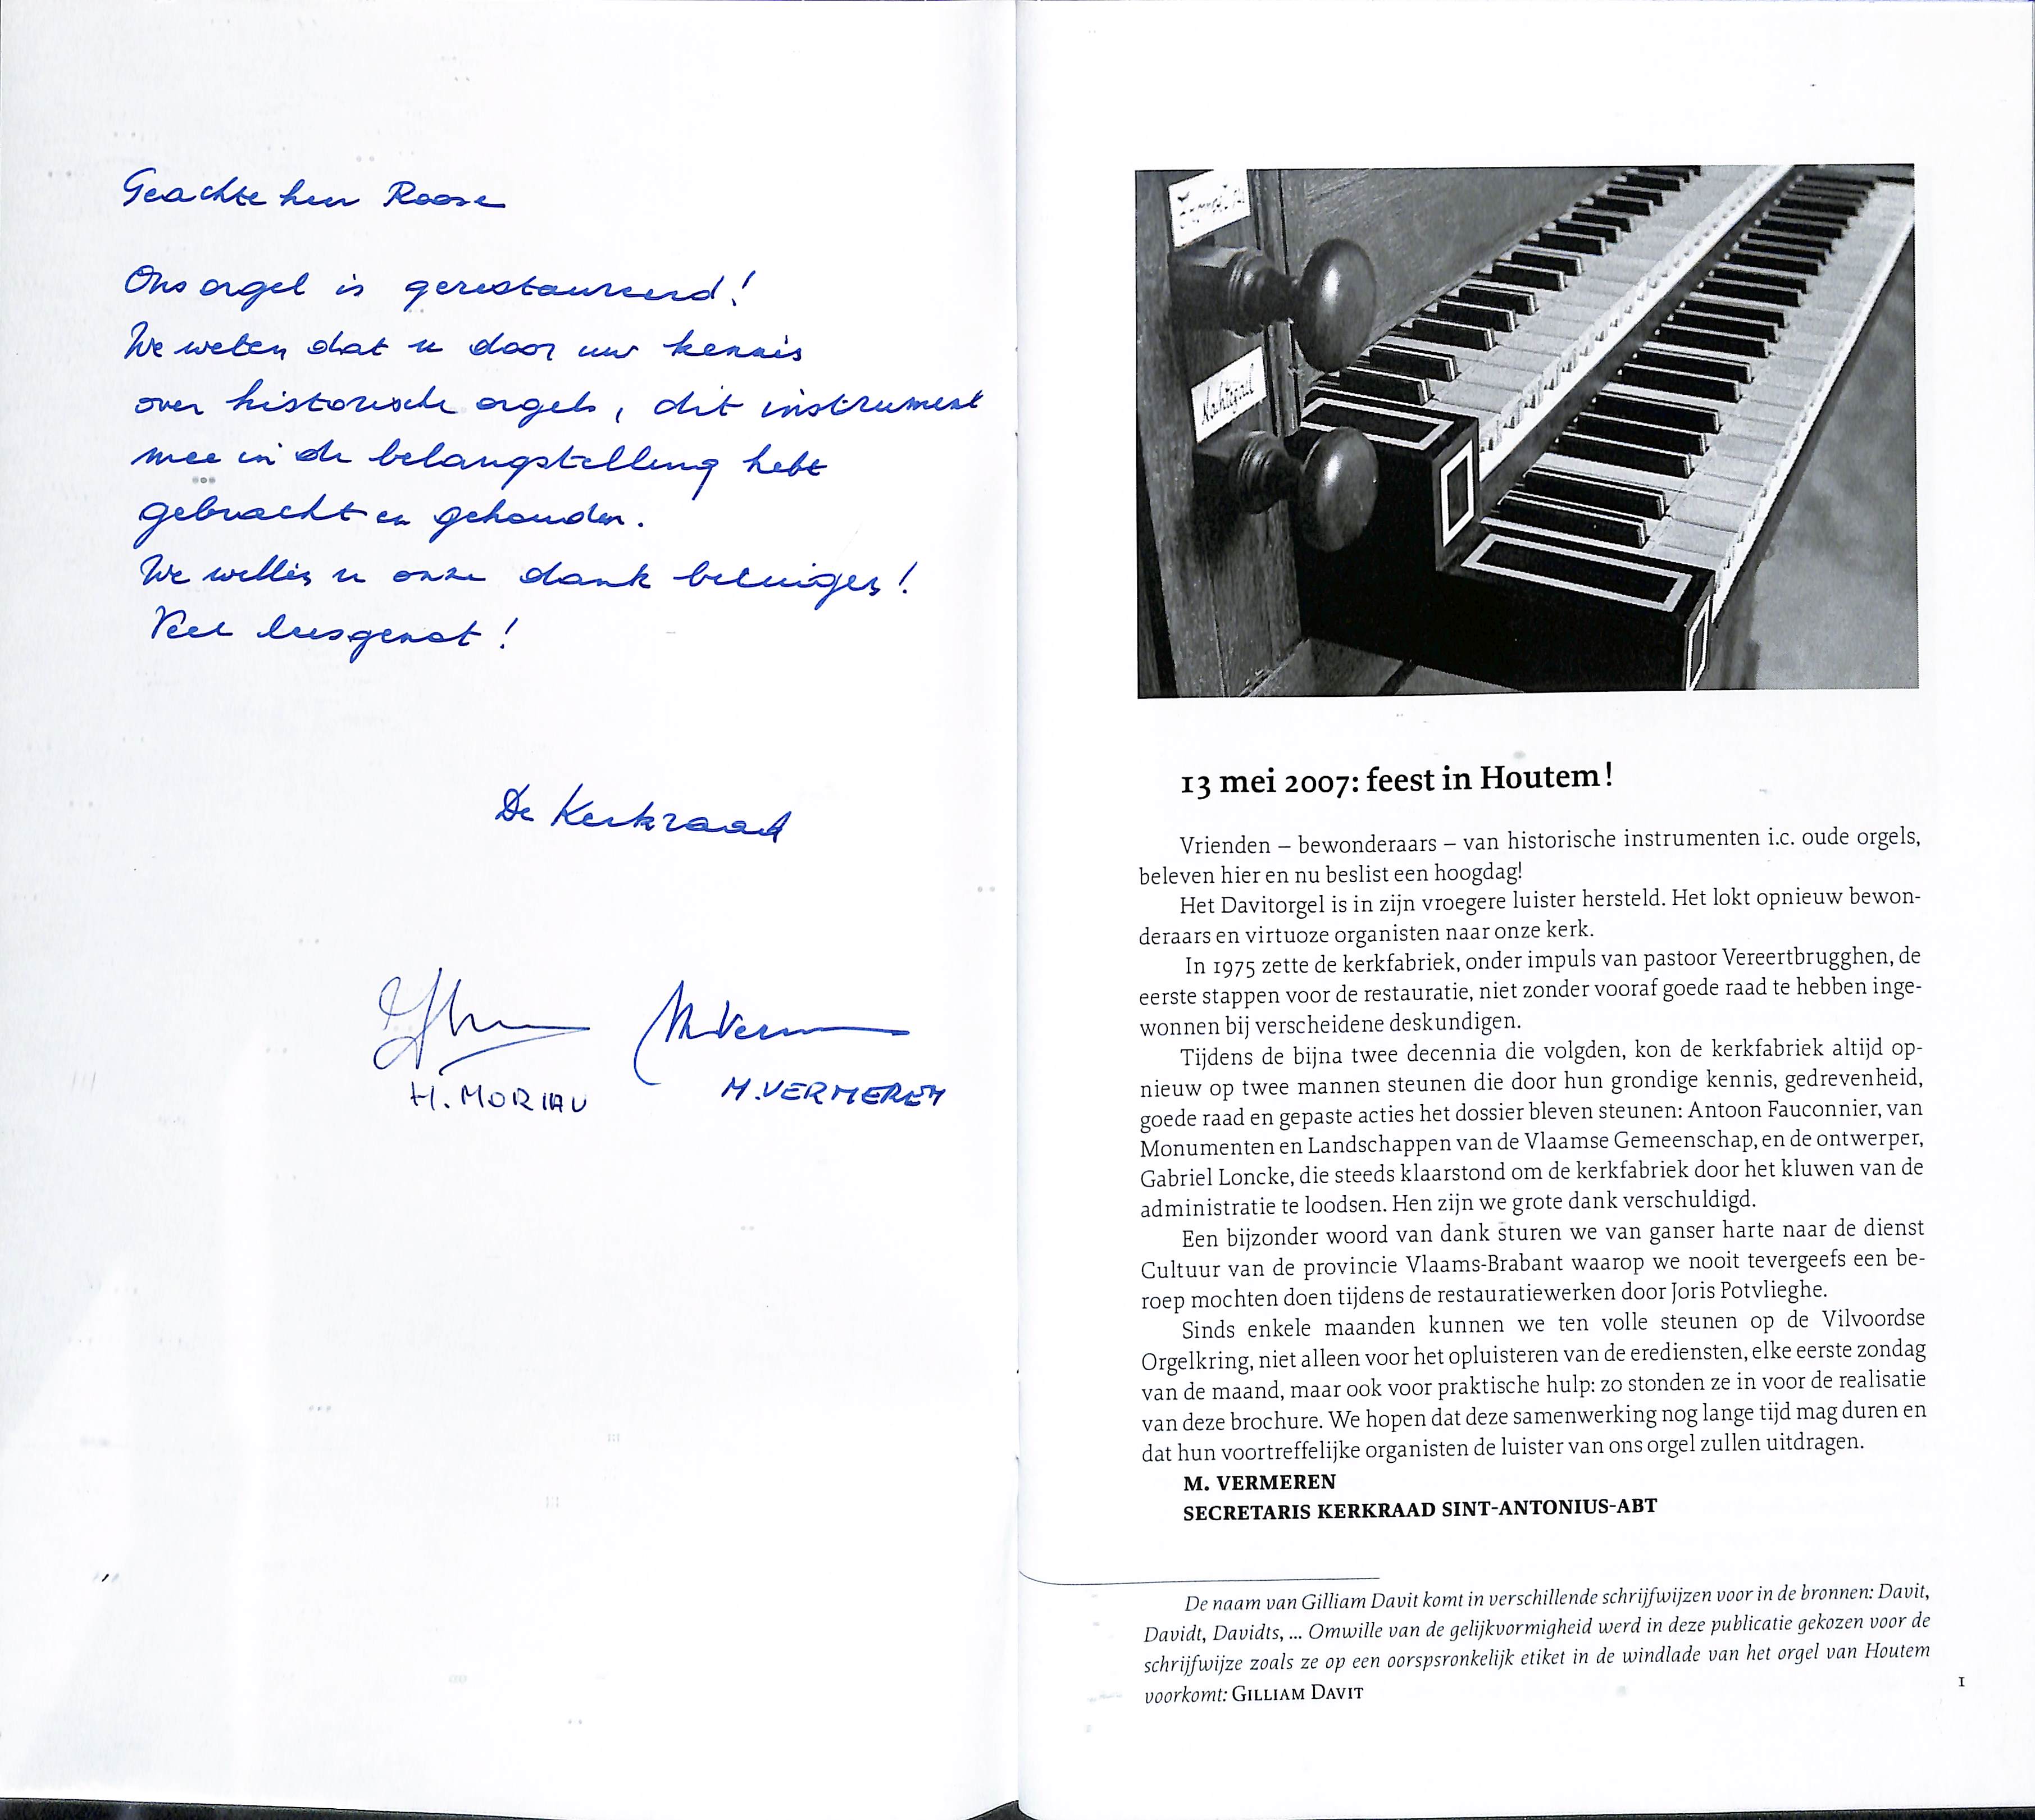 Geachte heer Roose
Ons orgel is gerestaureerd!
We weten dat u door uw kennis
over historische orgels, dit instrument
mee in de belangstelling hebt
gebracht en gehouden.
We willen u onze dank betuigen!
Veel leesgenot!
De Kerkraad
H. MORIAU
M. VERMEREN
Nachtegael
13 mei 2007: feest in Houtem!
Vrienden – bewonderaars – van historische instrumenten i.c. oude orgels,
beleven hier en nu beslist een hoogdag!
Het Davitorgel is in zijn vroegere luister hersteld. Het lokt opnieuw bewon-
deraars en virtuoze organisten naar onze kerk.
In 1975 zette de kerkfabriek, onder impuls van pastoor Vereertbrugghen, de
eerste stappen voor de restauratie, niet zonder vooraf goede raad te hebben inge-
wonnen bij verscheidene deskundigen.
Tijdens de bijna twee decennia die volgden, kon de kerkfabriek altijd op-
nieuw op twee mannen steunen die door hun grondige kennis, gedrevenheid,
goede raad en gepaste acties het dossier bleven steunen: Antoon Fauconnier, van
Monumenten en Landschappen van de Vlaamse Gemeenschap, en de ontwerper,
Gabriel Loncke, die steeds klaarstond om de kerkfabriek door het kluwen van de
administratie te loodsen. Hen zijn we grote dank verschuldigd.
Een bijzonder woord van dank sturen we van ganser harte naar de dienst
Cultuur van de provincie Vlaams-Brabant waarop we nooit tevergeefs een be-
roep mochten doen tijdens de restauratiewerken door Joris Potvlieghe.
Sinds enkele maanden kunnen we ten volle steunen op de Vilvoordse
Orgelkring, niet alleen voor het opluisteren van de erediensten, elke eerste zondag
van de maand, maar ook voor praktische hulp: zo stonden ze in voor de realisatie
van deze brochure. We hopen dat deze samenwerking nog lange tijd mag duren en
dat hun voortreffelijke organisten de luister van ons orgel zullen uitdragen.
M. VERMEREN
SECRETARIS KERKRAAD SINT-ANTONIUS-ABT
De naam van Gilliam Davit komt in verschillende schrijfwijzen voor in de bronnen: Davit,
Davidt, Davidts, ... Omwille van de gelijkvormigheid werd in deze publicatie gekozen voor de
schrijfwijze zoals ze op een oorspsronkelijk etiket in de windlade van het orgel van Houtem
voorkomt: GILLIAM DAVIT
1